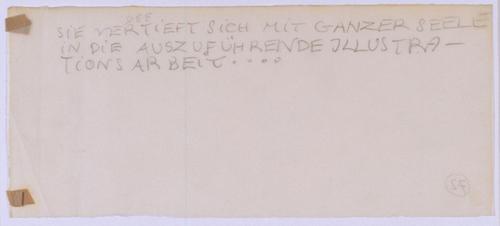 SIE VERTIEFT SICH MIT GANZER SEELE
IN DIE AUSZUFÜHRENDE ILLUSTRA–
TIONSARBEIT....